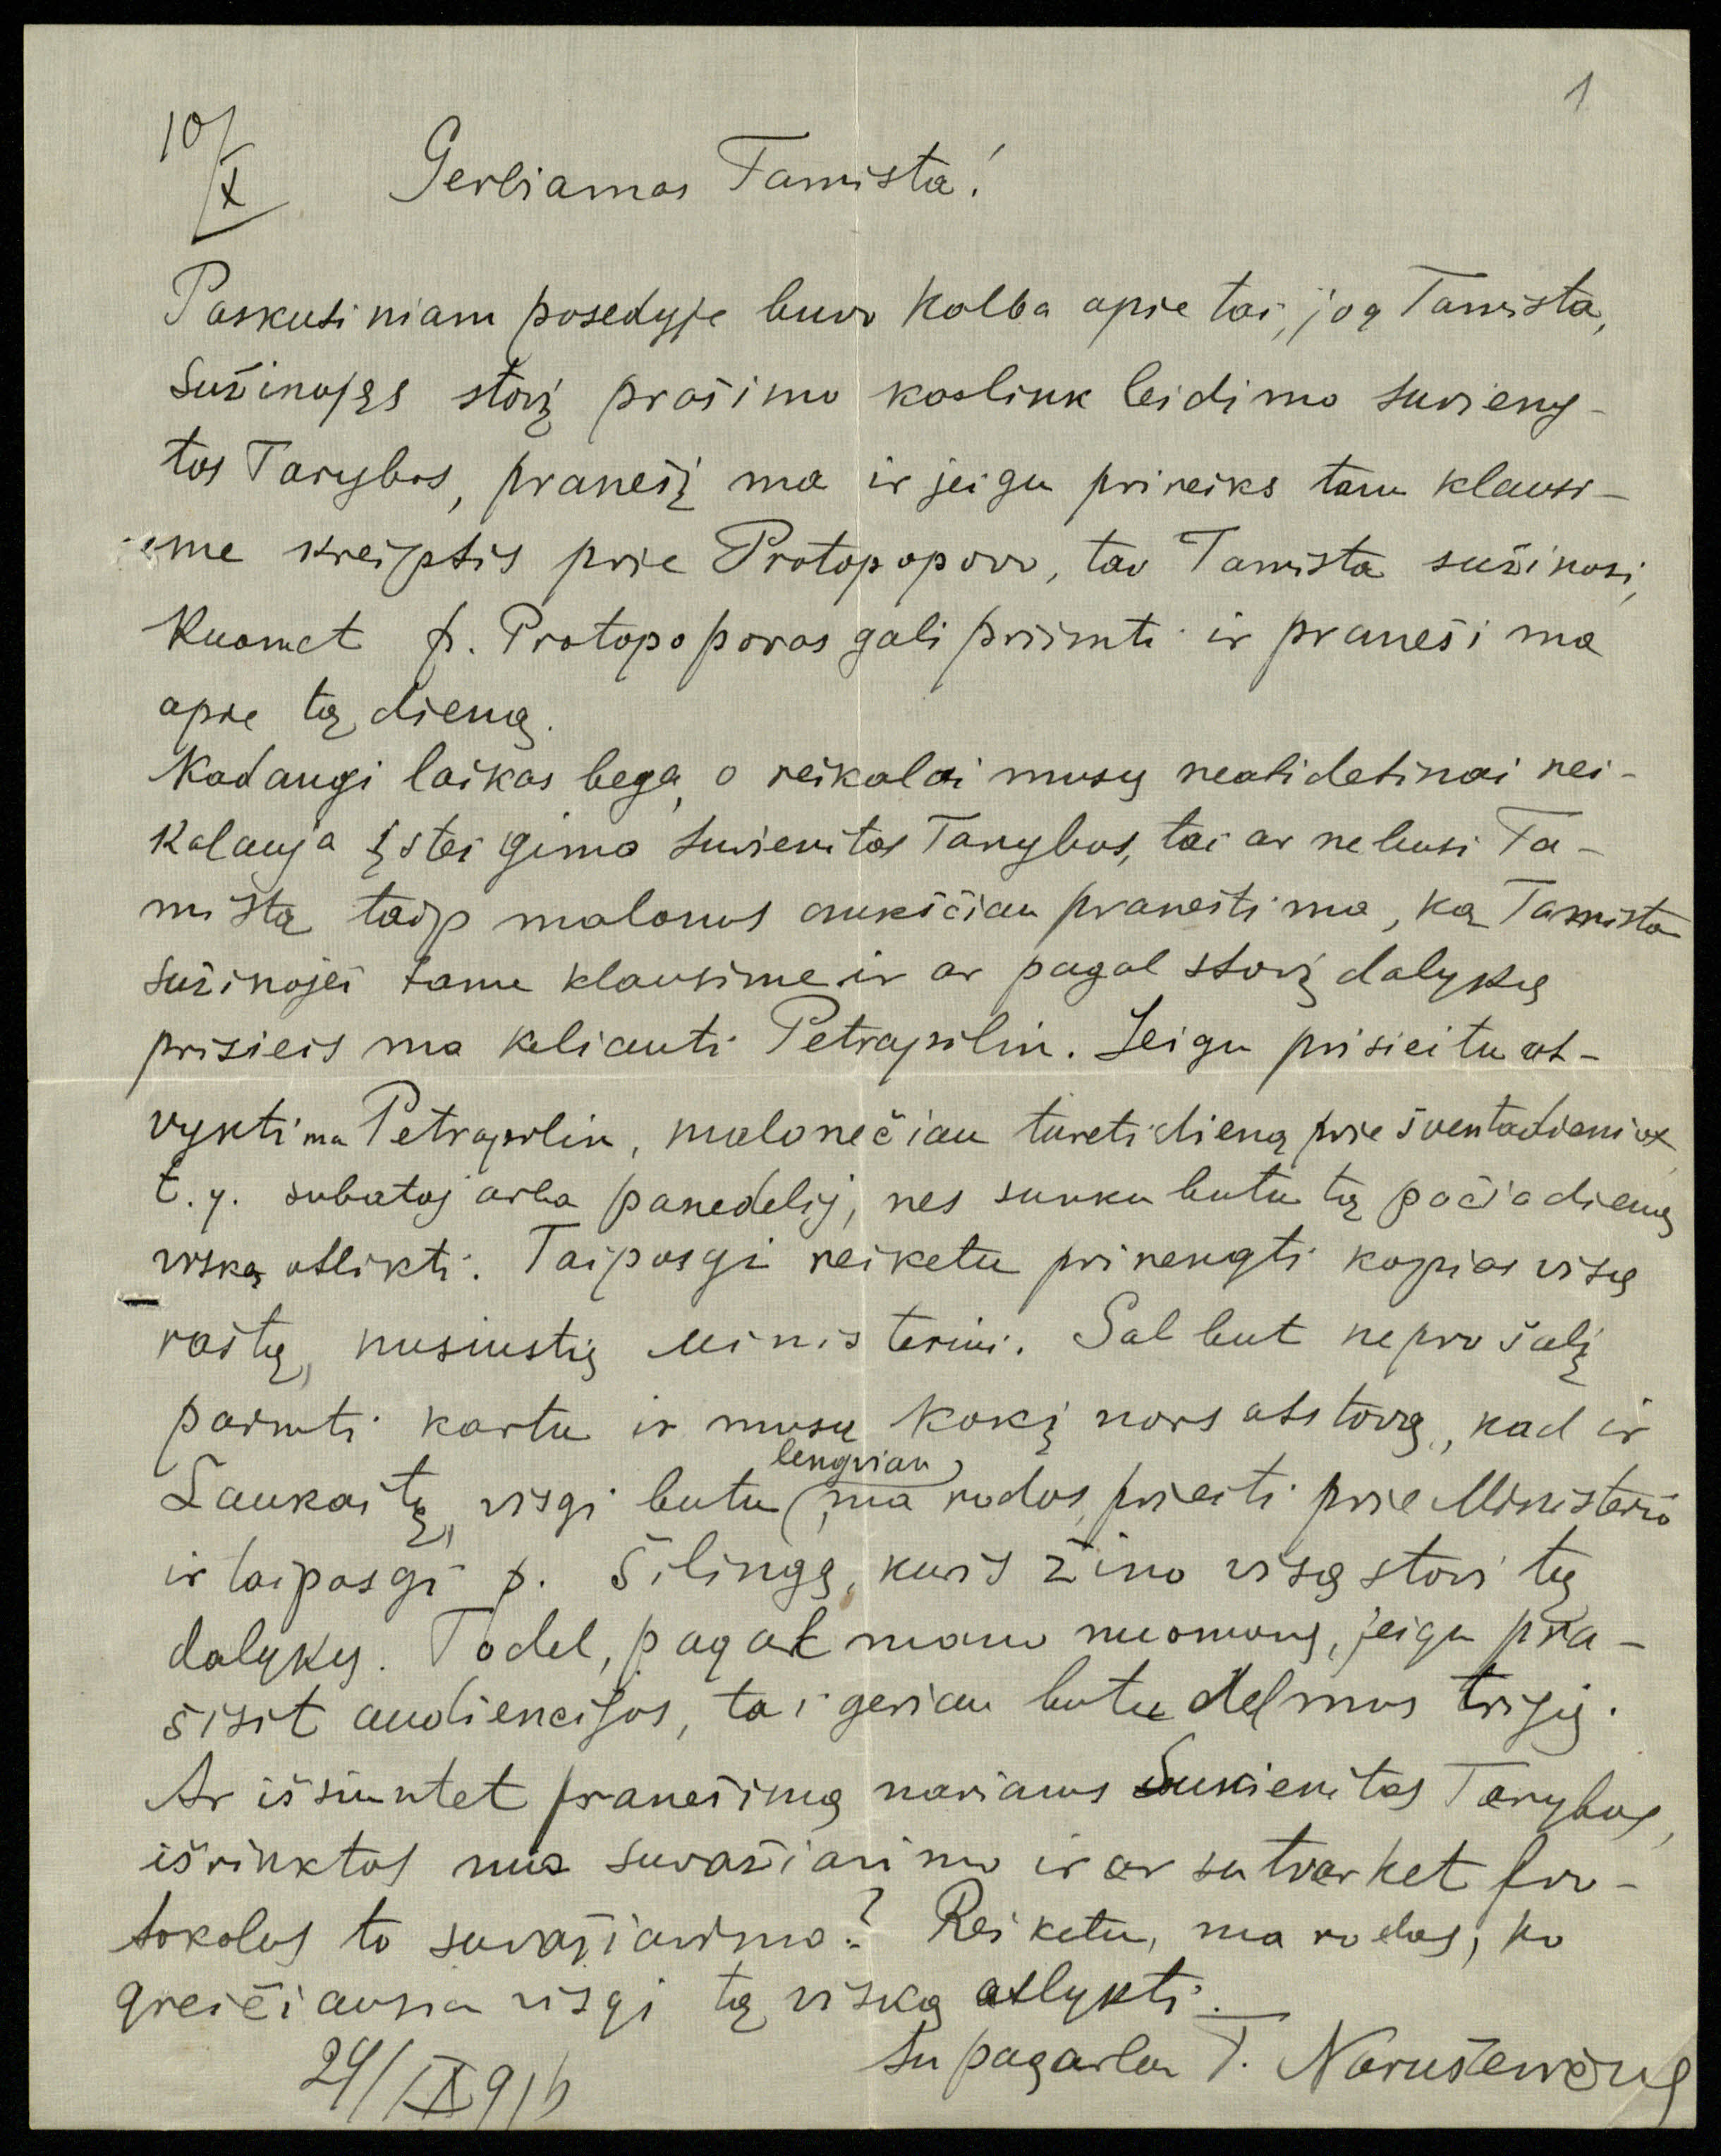 1
10/X
Gerbiamas Tamista!
Paskutiniam posedyje buvo kalba apie tai, jog Tamista,
sužinojęs stovį prašimo kaslink leidimo suvieny-
tos Tarybos, pranešį ma ir jeigu prireiks tam klausi-
me kreiptis prie Protopopovo, tav Tamista sužinosi,
kuomet p. Protopopovas gali priimti ir praneši ma
apie tą dieną.
Kadangi laikas bega, o reikalai musų neatidetinai rei-
kalauja įsteigimo Suvienitos Tarybos, tai ar nebusi Ta-
mistą taip malonus aukščiau pranešti ma, ką Tamista
sužinojei tame klausime ir ar pagal stovį dalykų
prisieis ma keliauti Petrapilin. Jeigu prisieitu at-
vykti ma Petrapilin, malonečiau tureti dieną prie šventadienius,
t.y. subatoj arba panedelij, nes sunku butu tą pačia dieną
viską atlikti. Taiposgi reiketu prirengti kopias visų
raštų, nusiustų Ministeriui. Gal but ne pro šalį
paimti kartu ir musų kokį nors atstovą, kad ir
Laukaitį, visgi butu lengviau, ma rodos, prieiti prie Ministerio
ir taiposgi p. Šilingą, kuris žino visą stovi tų
dalykų. Todel, pagal mano nuomonę, jeigu pra-
šisit audiencijos, tai geriau butu del mus trijų.
Ar išsiuntet pranešimą nariams Suvienitos Tarybos,
išrinktos nuo suvažiavimo ir ar sutvarket pro-
tokolus to suvažiavimo? Reiketu, ma rodos, ko
greičiausia visgi tą viską atlykti.
Su pagarba T. Naruševičius
24/IX 916